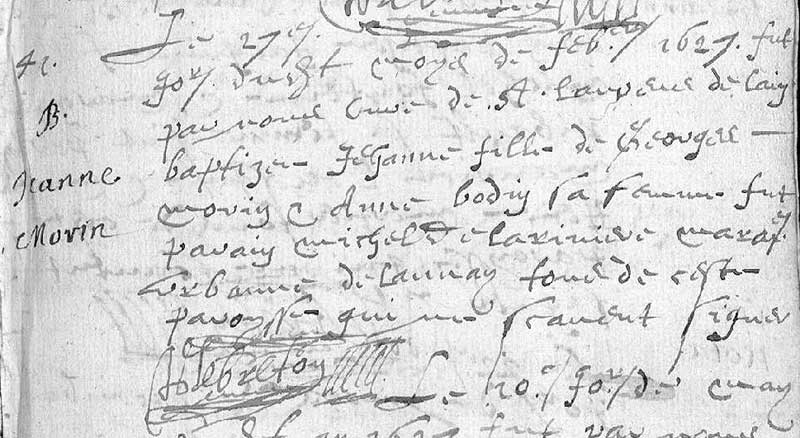 41.
B.
Jeanne
Morin
Le 27e. jor. dudt moys de feb.er 1627. fut
par nous Curé de St. Laurens de Laiy
baptizee Jehanne fille de Georges
Moriy & Anne bodiy sa femme fut
paraiy Michel de lariviere maraine
Urbanne delaunay tous de ceste
paroysse qui ne scavent signer
J lebreton
Le 10.e jor. de may
1627 fut par nous